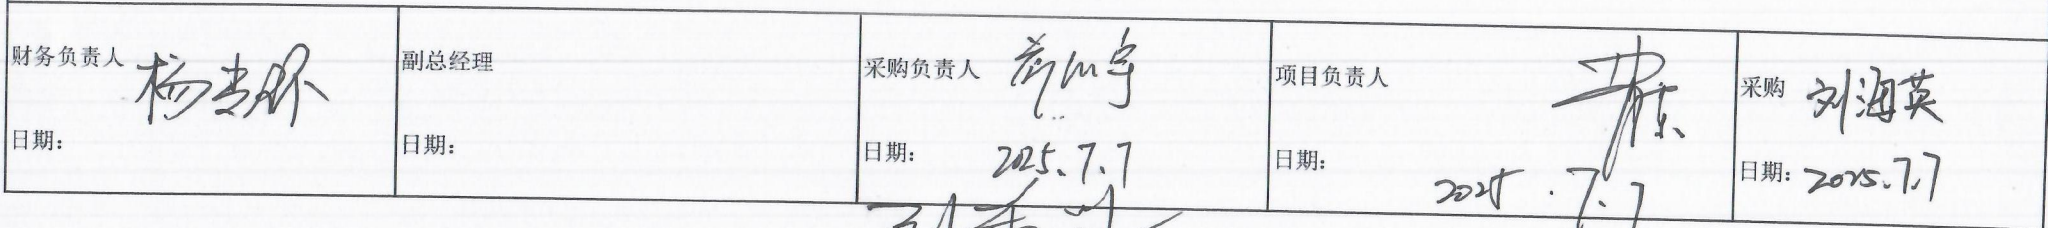 财务负责人 杨
日期：
副总经理
日期：
采购负责人
日期： 2025.7.7
项目负责人
日期： 2025.7.7
采购 刘海英
日期： 2025.7.7